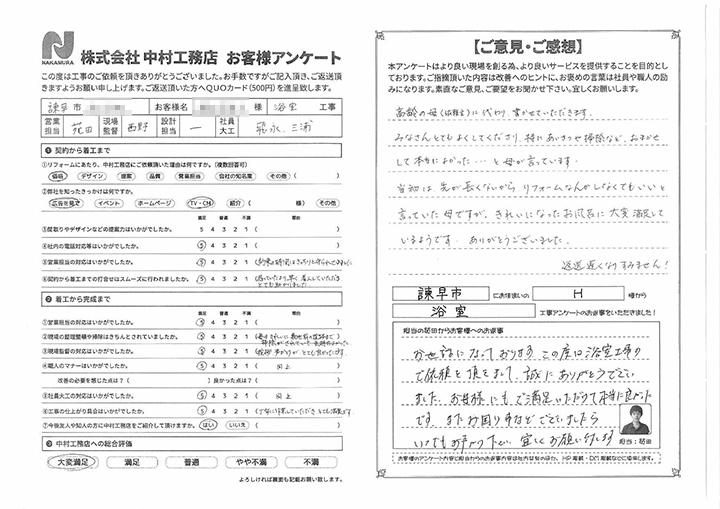 NAKAMURA
株式会社 中村工務店 お客様アンケート
この度は工事のご依頼を頂きありがとうございました。お手数ですがご記入頂き、ご返送頂
きますようお願い申し上げます。ご返送頂いた方へQUOカード(500円)を進呈致します。
諫早市 お客様名 様 浴室 工事
営業担当 花田 現場監督 西野 設計担当 ー 社員大工 三浦
❶ 契約から着工まで
①リフォームにあたり、中村工務店にご依頼頂いた理由は何ですか。(複数回答可)
価格 デザイン 提案 品質 営業担当 会社の知名度 その他 ( )
②弊社を知ったきっかけは何ですか。
広告を見て イベント ホームページ TV・CM 紹介 ( 様) その他
満足 普通 不満 理由
③間取りやデザインなどの提案力はいかがでしたか。 5 4 3 2 1 ( )
④社内の電話対応等はいかがでしたか。 5 4 3 2 1 ( )
⑤営業担当の対応はいかがでしたか。 5 4 3 2 1 (
⑥契約から着工までの打合せはスムーズに行われましたか。 5 4 3 2 1 (
❷ 着工から完成まで
満足 普通 不満 理由
①営業担当の対応はいかがでしたか。 5 4 3 2 1 ( )
②現場の整理整頓や掃除はきちんとされていましたか。 5 4 3 2 1 (
③現場監督の対応はいかがでしたか。 5 4 3 2 1 (
④職人のマナーはいかがでしたか。 5 4 3 2 1 ( 同上 )
改善の必要を感じた点は?( )良かった点は?( )
⑤社員大工の対応はいかがでしたか。 5 4 3 2 1 ( 同上 )
⑥工事の仕上がり具合はいかがでしたか。 5 4 3 2 1 (
⑦今後友人や知人の方に中村工務店をご紹介して頂けますか。 はい いいえ ( )
❸ 中村工務店への総合評価
大変満足 満足 普通 やや不満 不満
よろしければ裏面も記載お願い致します。
【ご意見・ご感想】
本アンケートはより良い現場を創る為、より良いサービスを提供することを目的とし
ております。ご指摘頂いた内容は改善へのヒントに、お褒めの言葉は社員や職人の励
みになります。素直なご意見、ご要望をお聞かせ下さい。宜しくお願い致します。
高齢の母に代わり、書かせていただきます。
みなさんとてもよくしてくださり、特にあいさつや掃除など、おまかせ
して本当によかった…と母が言っています。
当初は、先が長くないからリフォームなんかしなくてもいいと
言っていた母ですが、きれいになったお風呂に大変満足して
いるようです。ありがとうございました。
返送遅くなりすみません!
諫早市 にお住まいの H 様から
浴室 工事アンケートのお返事をいただきました!
担当の花田からお客様へのお返事
お世話になっております。この度は浴室工事の
ご依頼を頂きまして、誠にありがとうござい
ました。お母様にもご満足いただけて本当に良かった
です。またお困り事などございましたら
いつでもお声かけ下さい。宜しくお願い致します
担当:花田
お客様のアンケート内容と担当からのお返事内容は社内掲示のほか、HP掲載・DM掲載などに使用します。